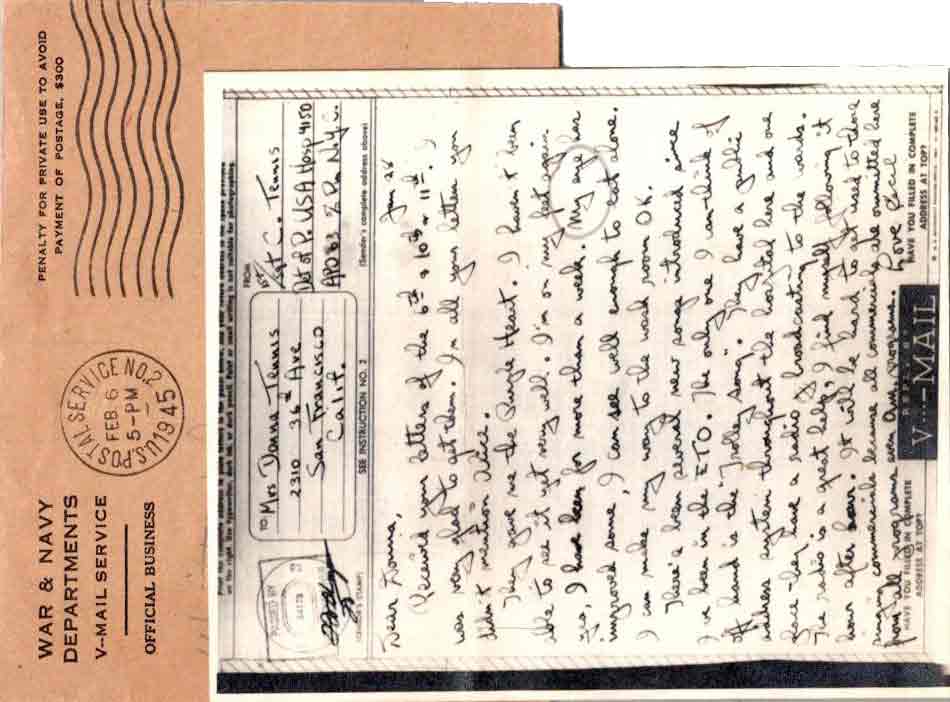 WAR & NAVY
DEPARTMENTS
V-MAIL SERVICE
OFFICIAL BUSINESS
U.S. POSTAL SERVICE NO. 2
FEB 6
5-PM
1945
PENALTY FOR PRIVATE USE TO AVOID
PAYMENT OF POSTAGE, $300
PASSED BY
TO Mrs Donna Tennis
2310 36th Ave
San Francisco
Calif.
SEE INSTRUCTION NO. 2
FROM
C. Tennis
Det of P. USA Hosp 4150
APO 63 % Pm N.Y.C.
(Sender's complete address above)
Jan 28
Dear Donna,
Received your letters of the 6th & 10th or 11th. I
was very glad to get them. In all your letters you
didn't mention Alice.
They gave me the Purple Heart. I haven't been
able to see it yet very well. I'm on my feet again
now, I have been for more than a week. My eye has
improved some, I can see well enough to eat alone.
I can make my way to the wash room OK.
There's been several new songs introduced since
I've been in the ETO. The only one I can think of
off hand is the "Trolley Song". They have a public
address system throughout the hospital here and one
place they have a radio & broadcasting to the wards.
The radio is a great help, I find myself following it
hour after hour. It will be hard to get used to those
singing commercials because all commercials are ommitted here
from all programs even Am. programs.
Love Cecil
HAVE YOU FILLED IN COMPLETE
ADDRESS AT TOP?
V---MAIL
HAVE YOU FILLED IN COMPLETE
ADDRESS AT TOP?